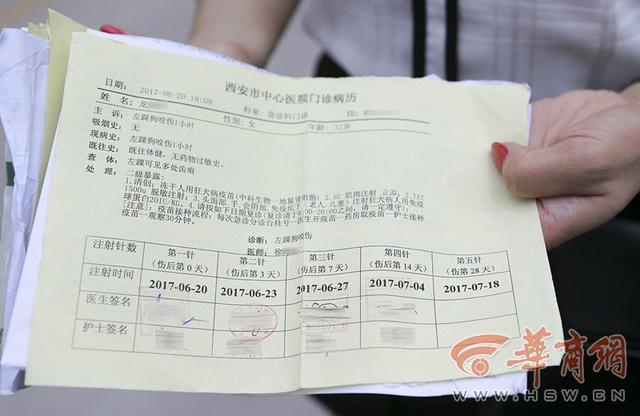 西安市中心医院门诊病历
日期: 2017-06-20 18:09 科室: 急诊科门诊 ID: W
姓 名: 龙 性别: 女 年龄: 32岁
主 诉: 左踝狗咬伤1小时
吸烟史: 无
现病史: 左踝狗咬伤1小时
既往史: 既往体健、无药物过敏史。
查 体: 左踝可见多处齿痕
处 理: 二级暴露:
1.清创;冻干人用狂犬病疫苗(中科生物--地鼠肾细胞) 2.5U 肌肉注射 立即, 2.TAT
1500u 脱敏注射; 3.头面部、手、会阴部、免疫低下(老人,儿童)注射狂犬病人用免疫
球蛋白20IU/KG。4.请按如下日期复诊(复诊请于8:00-20:00之间,请一定遵守)
[注意]: 疫苗接种流程: 每次急诊分诊台挂号--医生开疫苗--药房取疫苗--护士接种
疫苗--观察30分钟。
诊断: 左踝狗咬伤
医师: 徐
注射针数 第一针 第二针 第三针 第四针 第五针
(伤后第 0 天) (伤后第 3 天) (伤后第 7 天) (伤后第 14 天) (伤后第 28 天)
注射时间 2017-06-20 2017-06-23 2017-06-27 2017-07-04 2017-07-18
医生签名
护士签名
华商网
WWW.HSW.CN